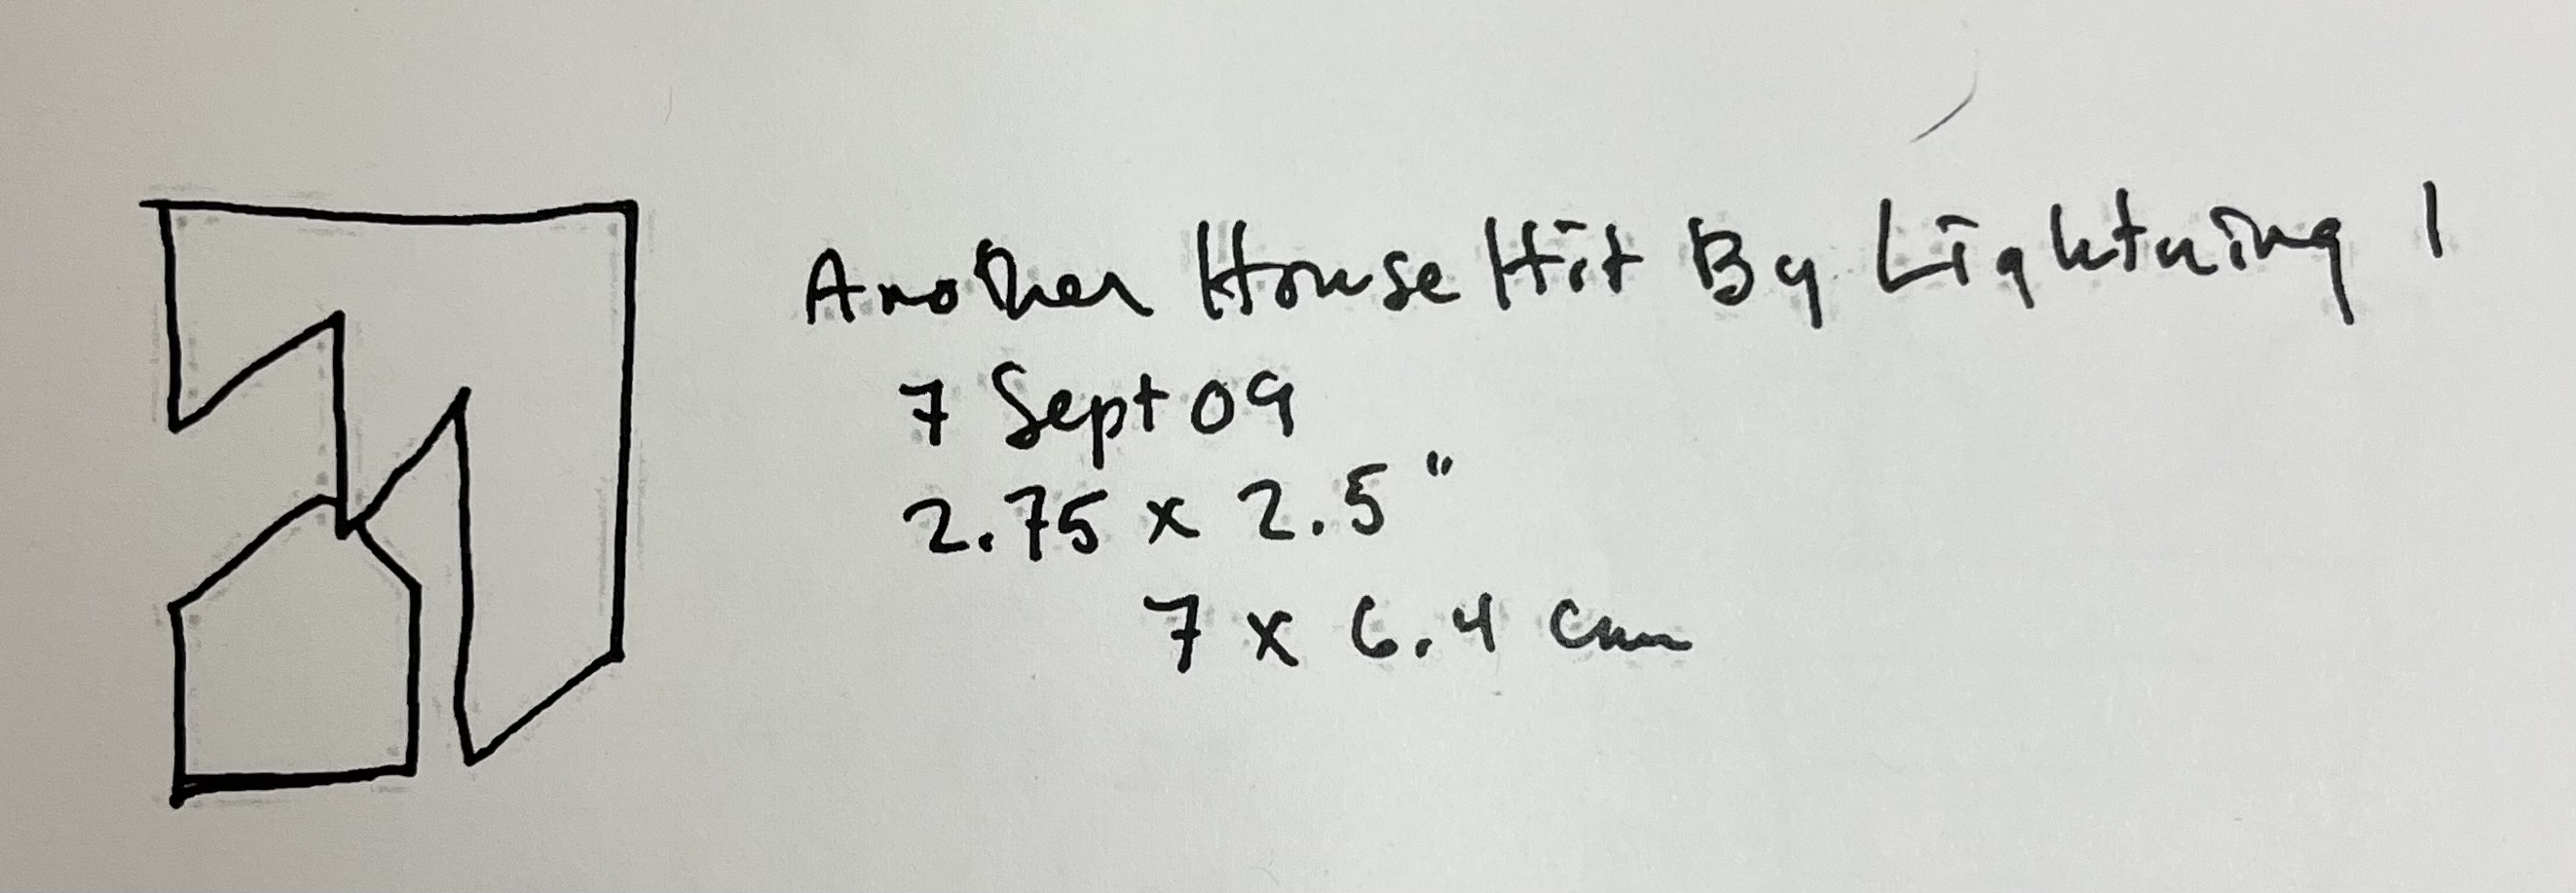 Another House Hit By Lightning 1
7 Sept 09
2.75 x 2.5"
7 x 6.4 cm